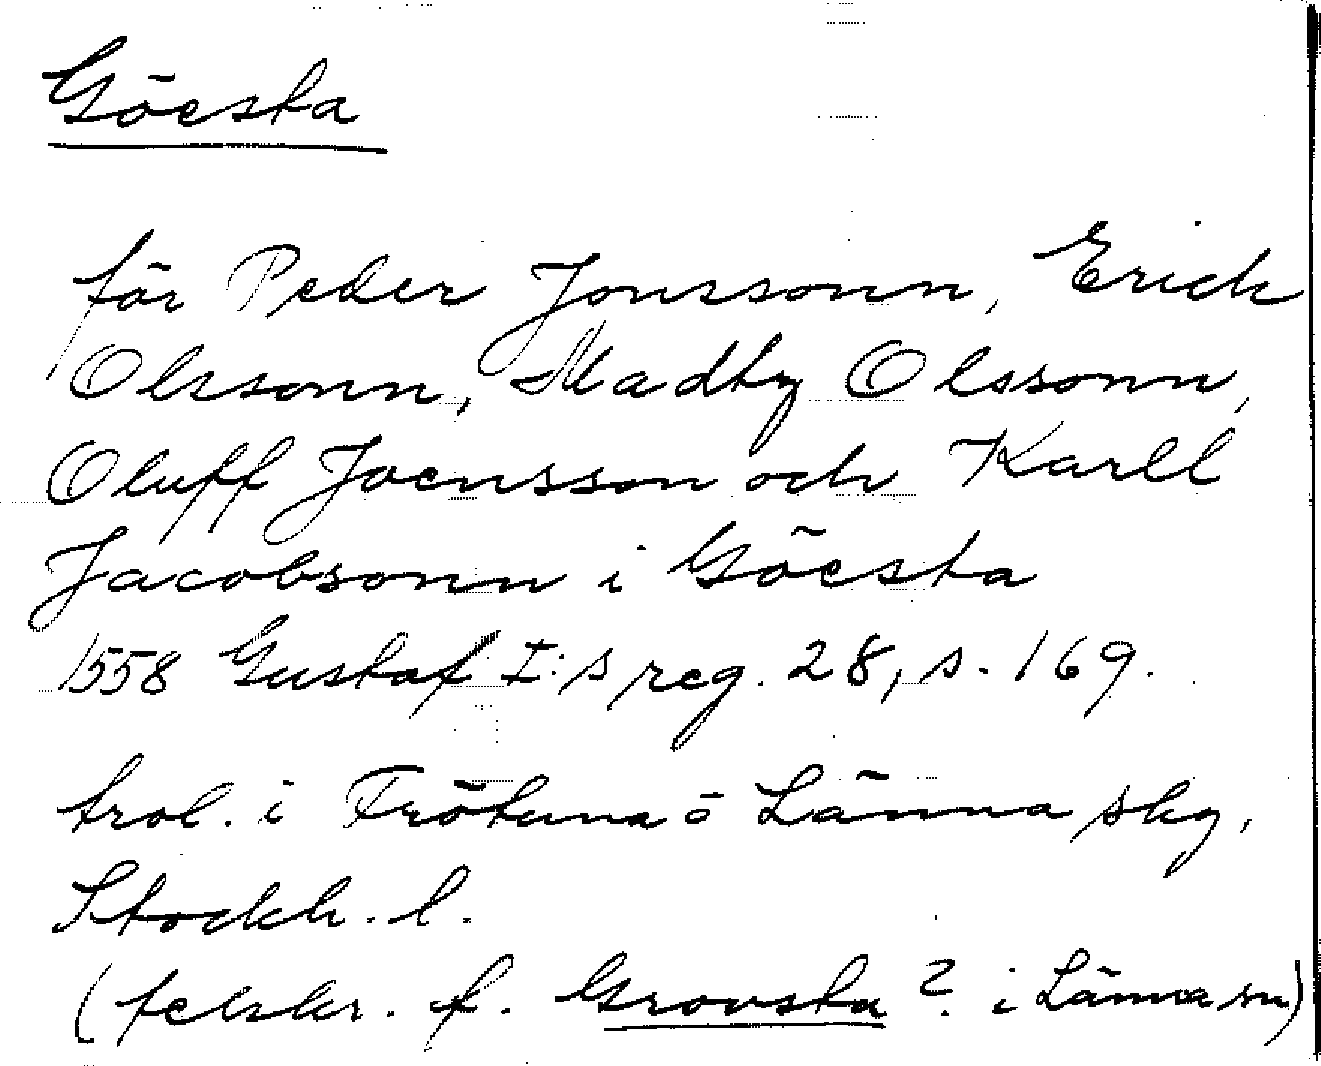 Göesta
för Peder Jonssonn, Erich
Olssonn, Madtz Olssonn,
Oluff Joensson och Karll
Jacobsonn i Göesta
1558 Gustaf I:s reg. 28, s. 169.
trol. i Frötuna o Länna skg,
Stockh. l.
(felskr. f. Grovsta? i Länna sn)